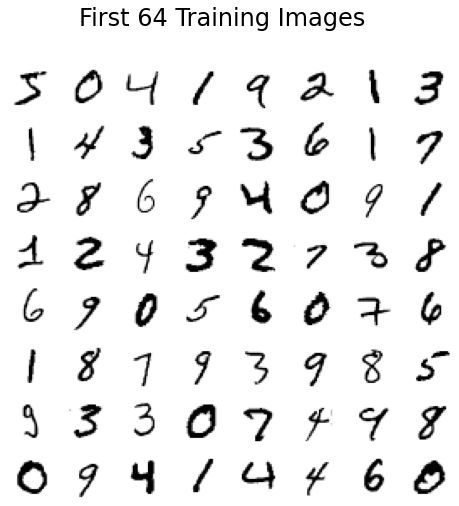 First 64 Training Images
5 0 4 1 9 2 1 3
1 4 3 5 3 6 1 7
2 8 6 9 4 0 9 1
1 2 4 3 2 7 3 8
6 9 0 5 6 0 7 6
1 8 7 9 3 9 8 5
9 3 3 0 7 4 9 8
0 9 4 1 4 4 6 0